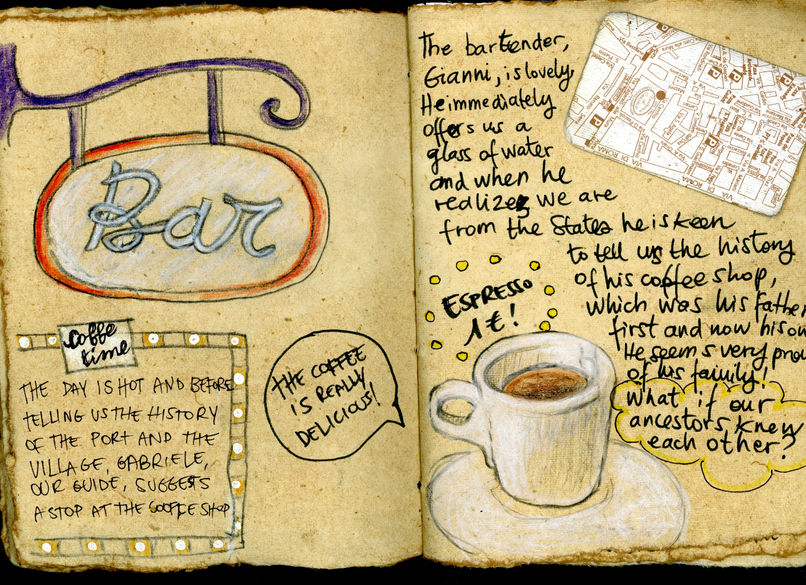 Bar
coffe
time
THE DAY IS HOT AND BEFORE
TELLING US THE HISTORY
OF THE PORT AND THE
VILLAGE, GABRIELE,
OUR GUIDE, SUGGESTS
A STOP AT THE COOFFE SHOP
THE COFFEE
IS REALLY
DELICIOUS!
The bartender,
Gianni, is lovely
He immediately
offers us a
glass of water
and when he
realizes we are
from the States he is keen
to tell us the history
of his coffee shop,
which was his father
first and now his ow
He seems very prou
of his family!
ESPRESSO
1 €!
What if our
ancestors knew
each other?
VIA DI ROMA
VIA DI ROMA